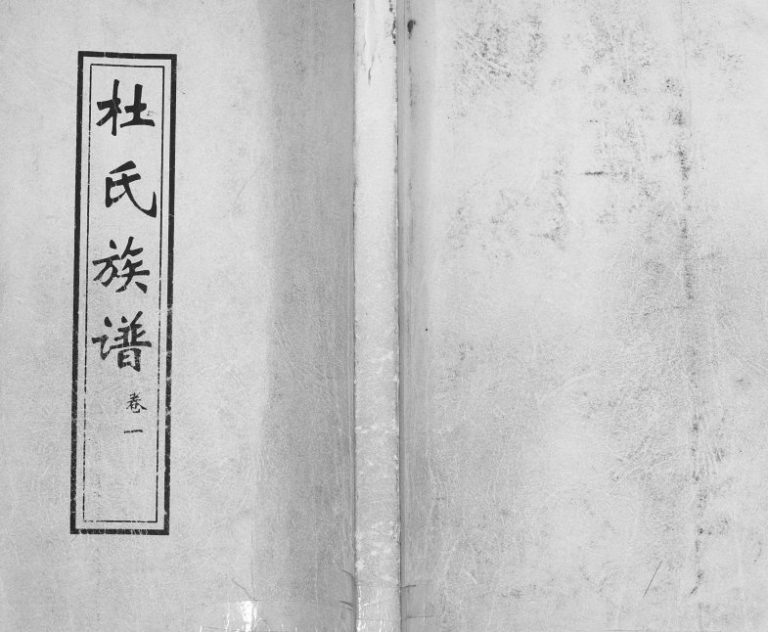 杜氏族谱
卷一